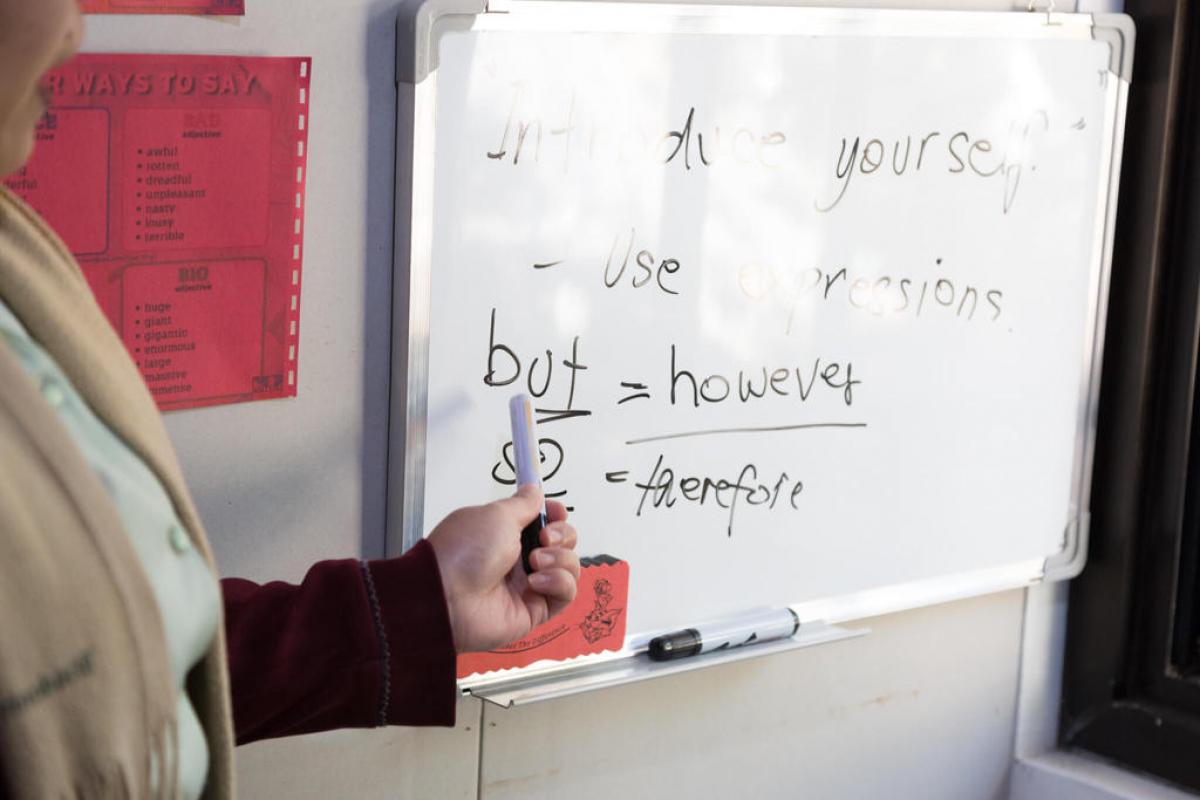 R WAYS TO SAY
BAD
adjective
• awful
• rotten
• dreadful
• unpleasant
• nasty
• lousy
• terrible
BIG
adjective
• huge
• giant
• gigantic
• enormous
• large
massive
mmense
Introduce yourself."
- Use expressions.
but = however
so = therefore
The Difference